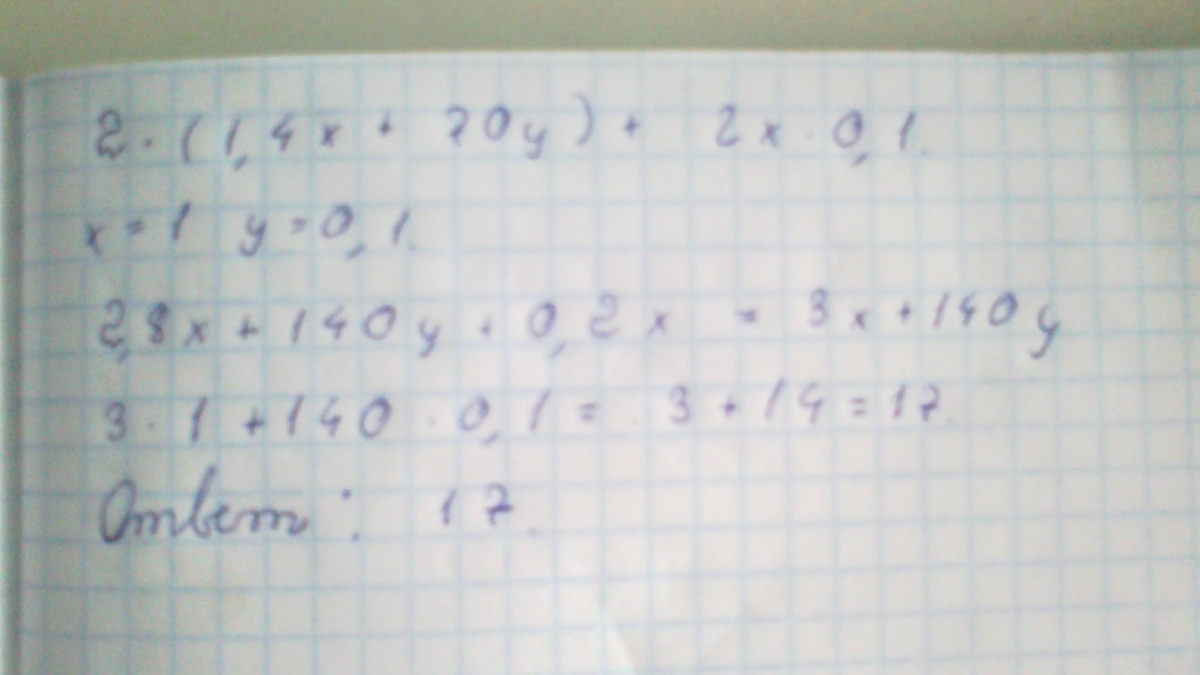 2·(1,4x + 70y) + 2x·0,1.
x=1 y=0,1.
2,8x + 140y + 0,2x = 3x+140y
3·1 +140·0,1 = 3+14=17.
Ответ: 17.